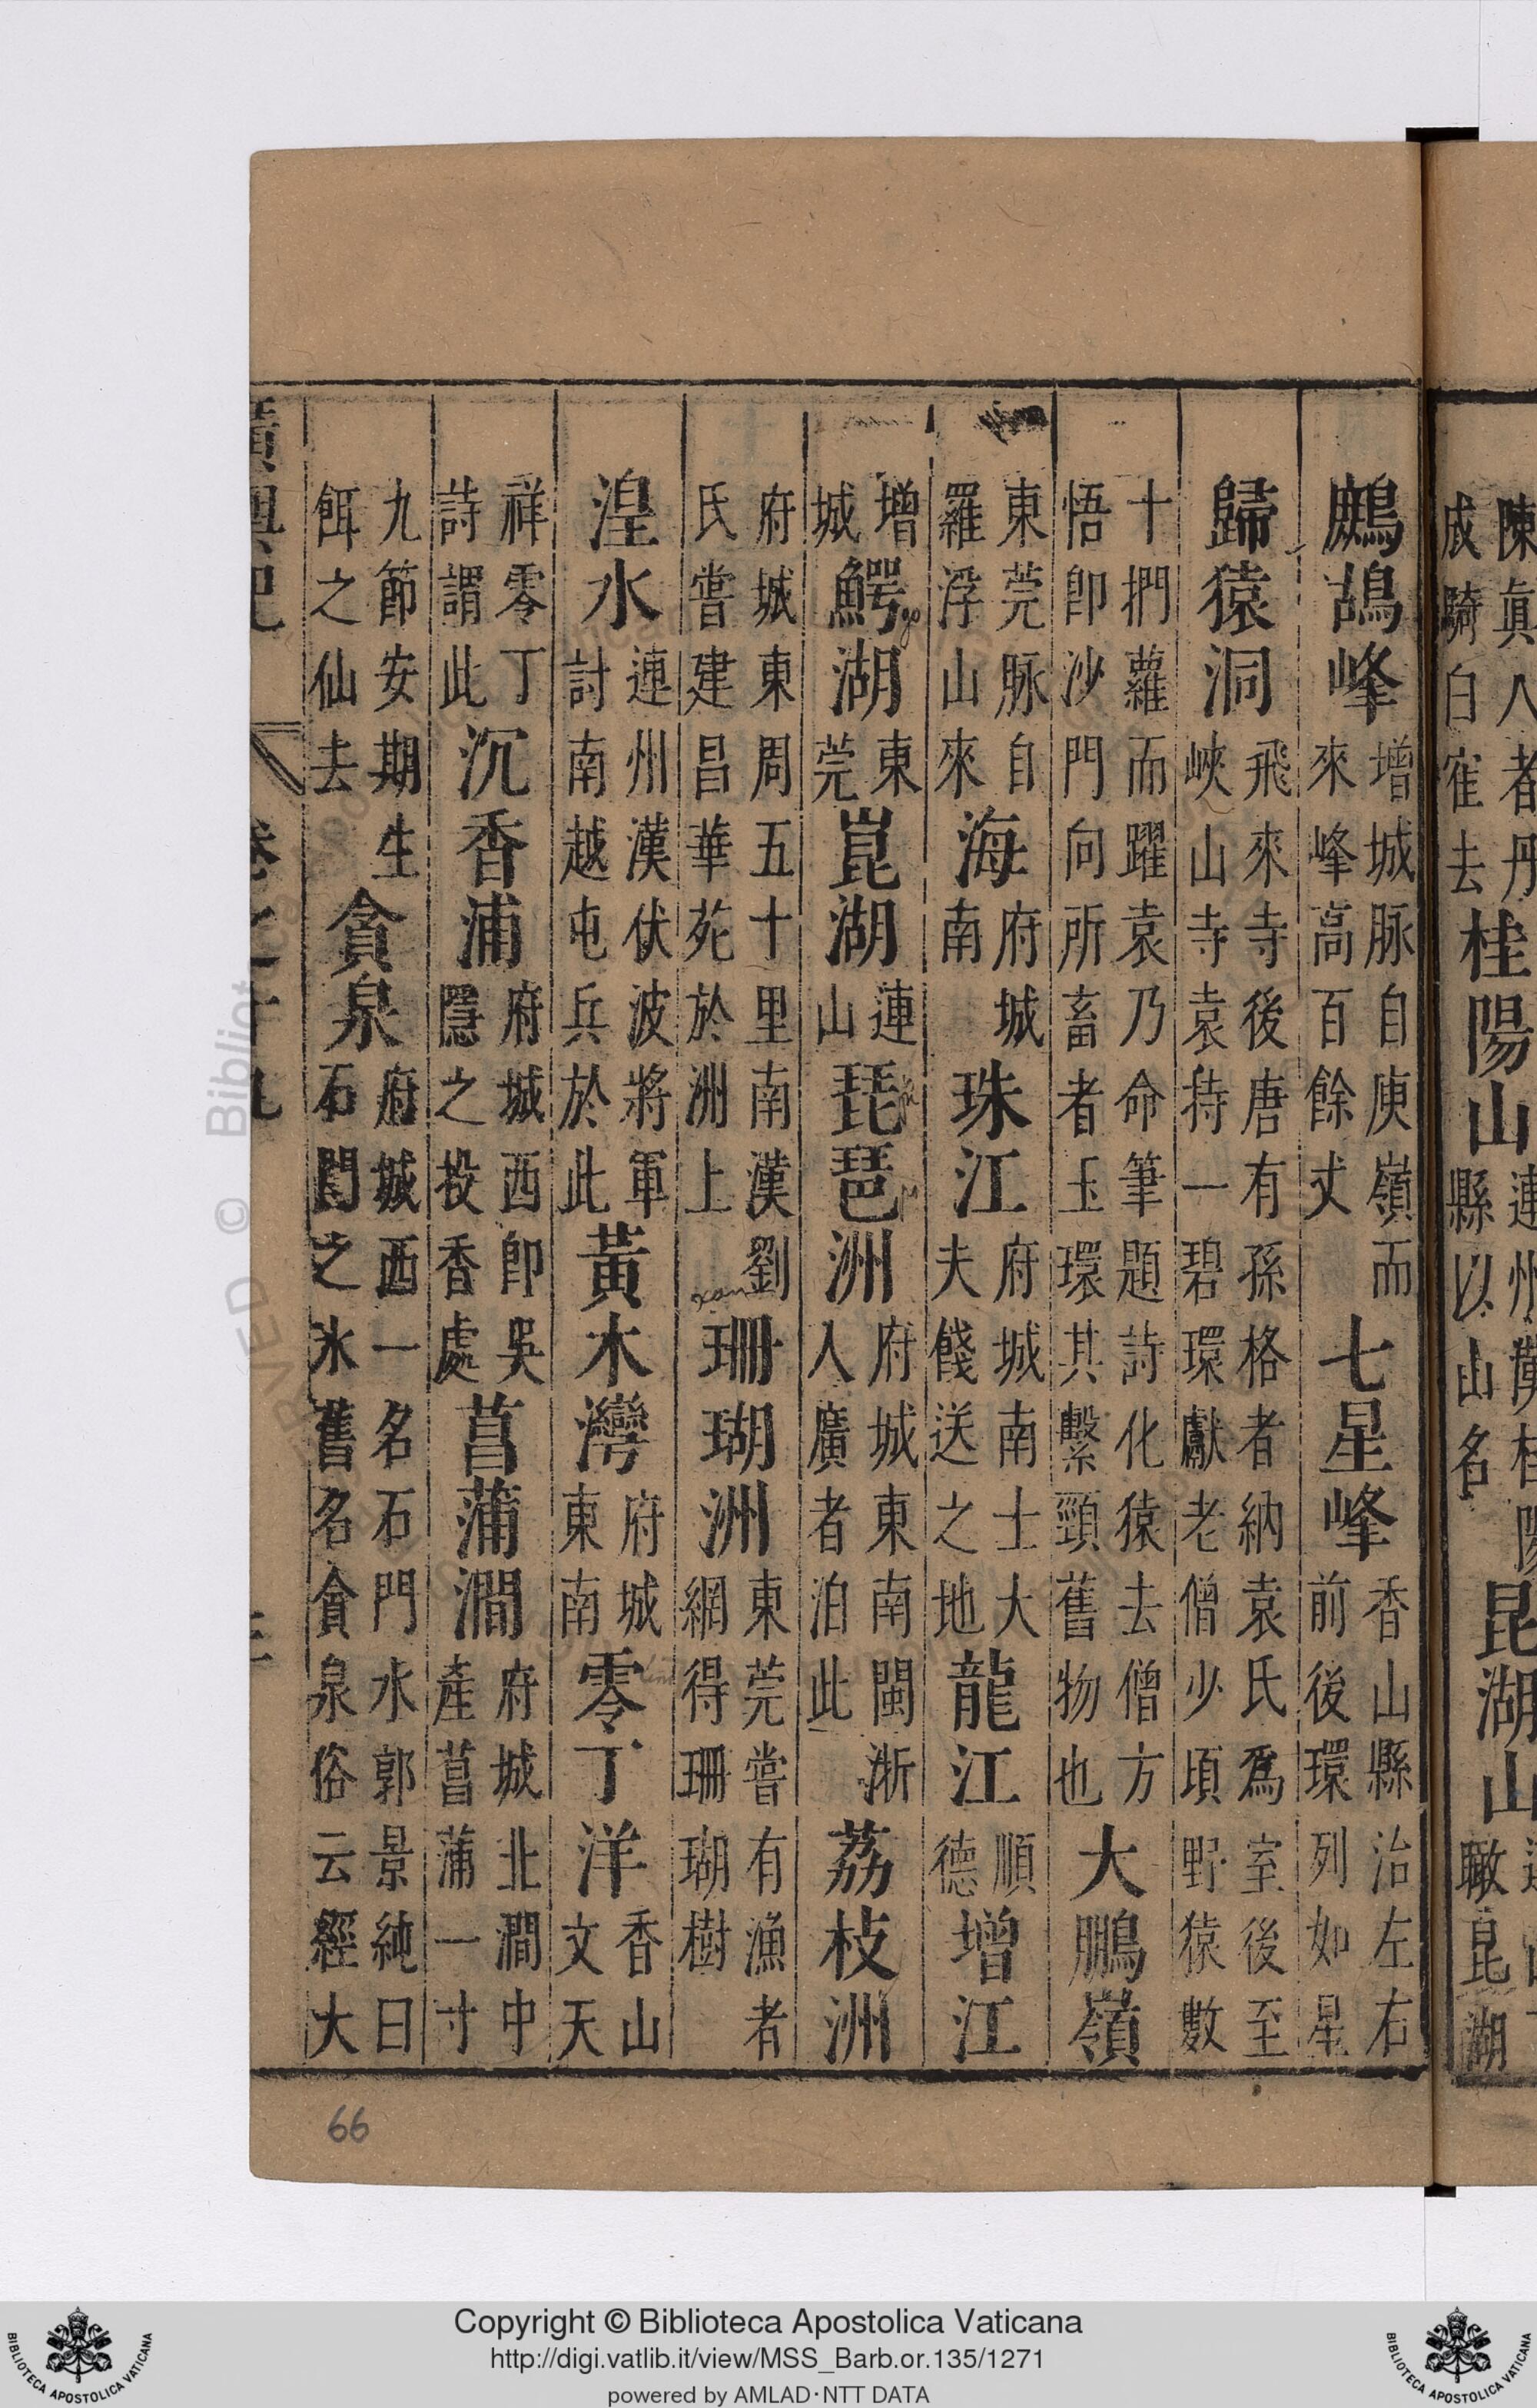 鷓鴣峰增城脉自庾嶺而來峰高百餘丈七星峰香山縣治左右前後環列如星
歸猿洞飛來寺後唐有孫格者納袁氏爲室後至峽山寺袁持一碧環獻老僧少頃野猿數
十捫蘿而躍袁乃命筆題詩化猿去僧方悟卽沙門向所畜者玉環其繫頸舊物也大鵬嶺
東莞脉自羅浮山來海南府城珠江府城南士大夫餞送之地龍江順德增江
增城鰐湖東莞崑湖連山琵琶洲府城東南閩浙人廣者泊此荔枝洲
府城東周五十里南漢劉氏嘗建昌華苑於洲上珊瑚洲東莞嘗有漁者網得珊瑚樹
湟水連州漢伏波將軍討南越屯兵於此黃木灣府城東南零丁洋香山文天
祥零丁詩謂此沉香浦府城西卽吳隱之投香處菖蒲澗府城北澗中產菖蒲一寸
九節安期生餌之仙去貪泉府城西一名石門水郭景純曰石門之水舊名貪泉俗云經大
陳眞人者丹成騎白寉去桂陽山連州漢桂陽縣以山名昆湖山瞰昆湖
廣輿記
卷之十九
go
xan
66
Copyright © Biblioteca Apostolica Vaticana
http://digi.vatlib.it/view/MSS_Barb.or.135/1271
powered by AMLAD·NTT DATA
BIBLIOTECA APOSTOLICA VATICANA
BIBLIOTECA APOSTOLICA VATICANA